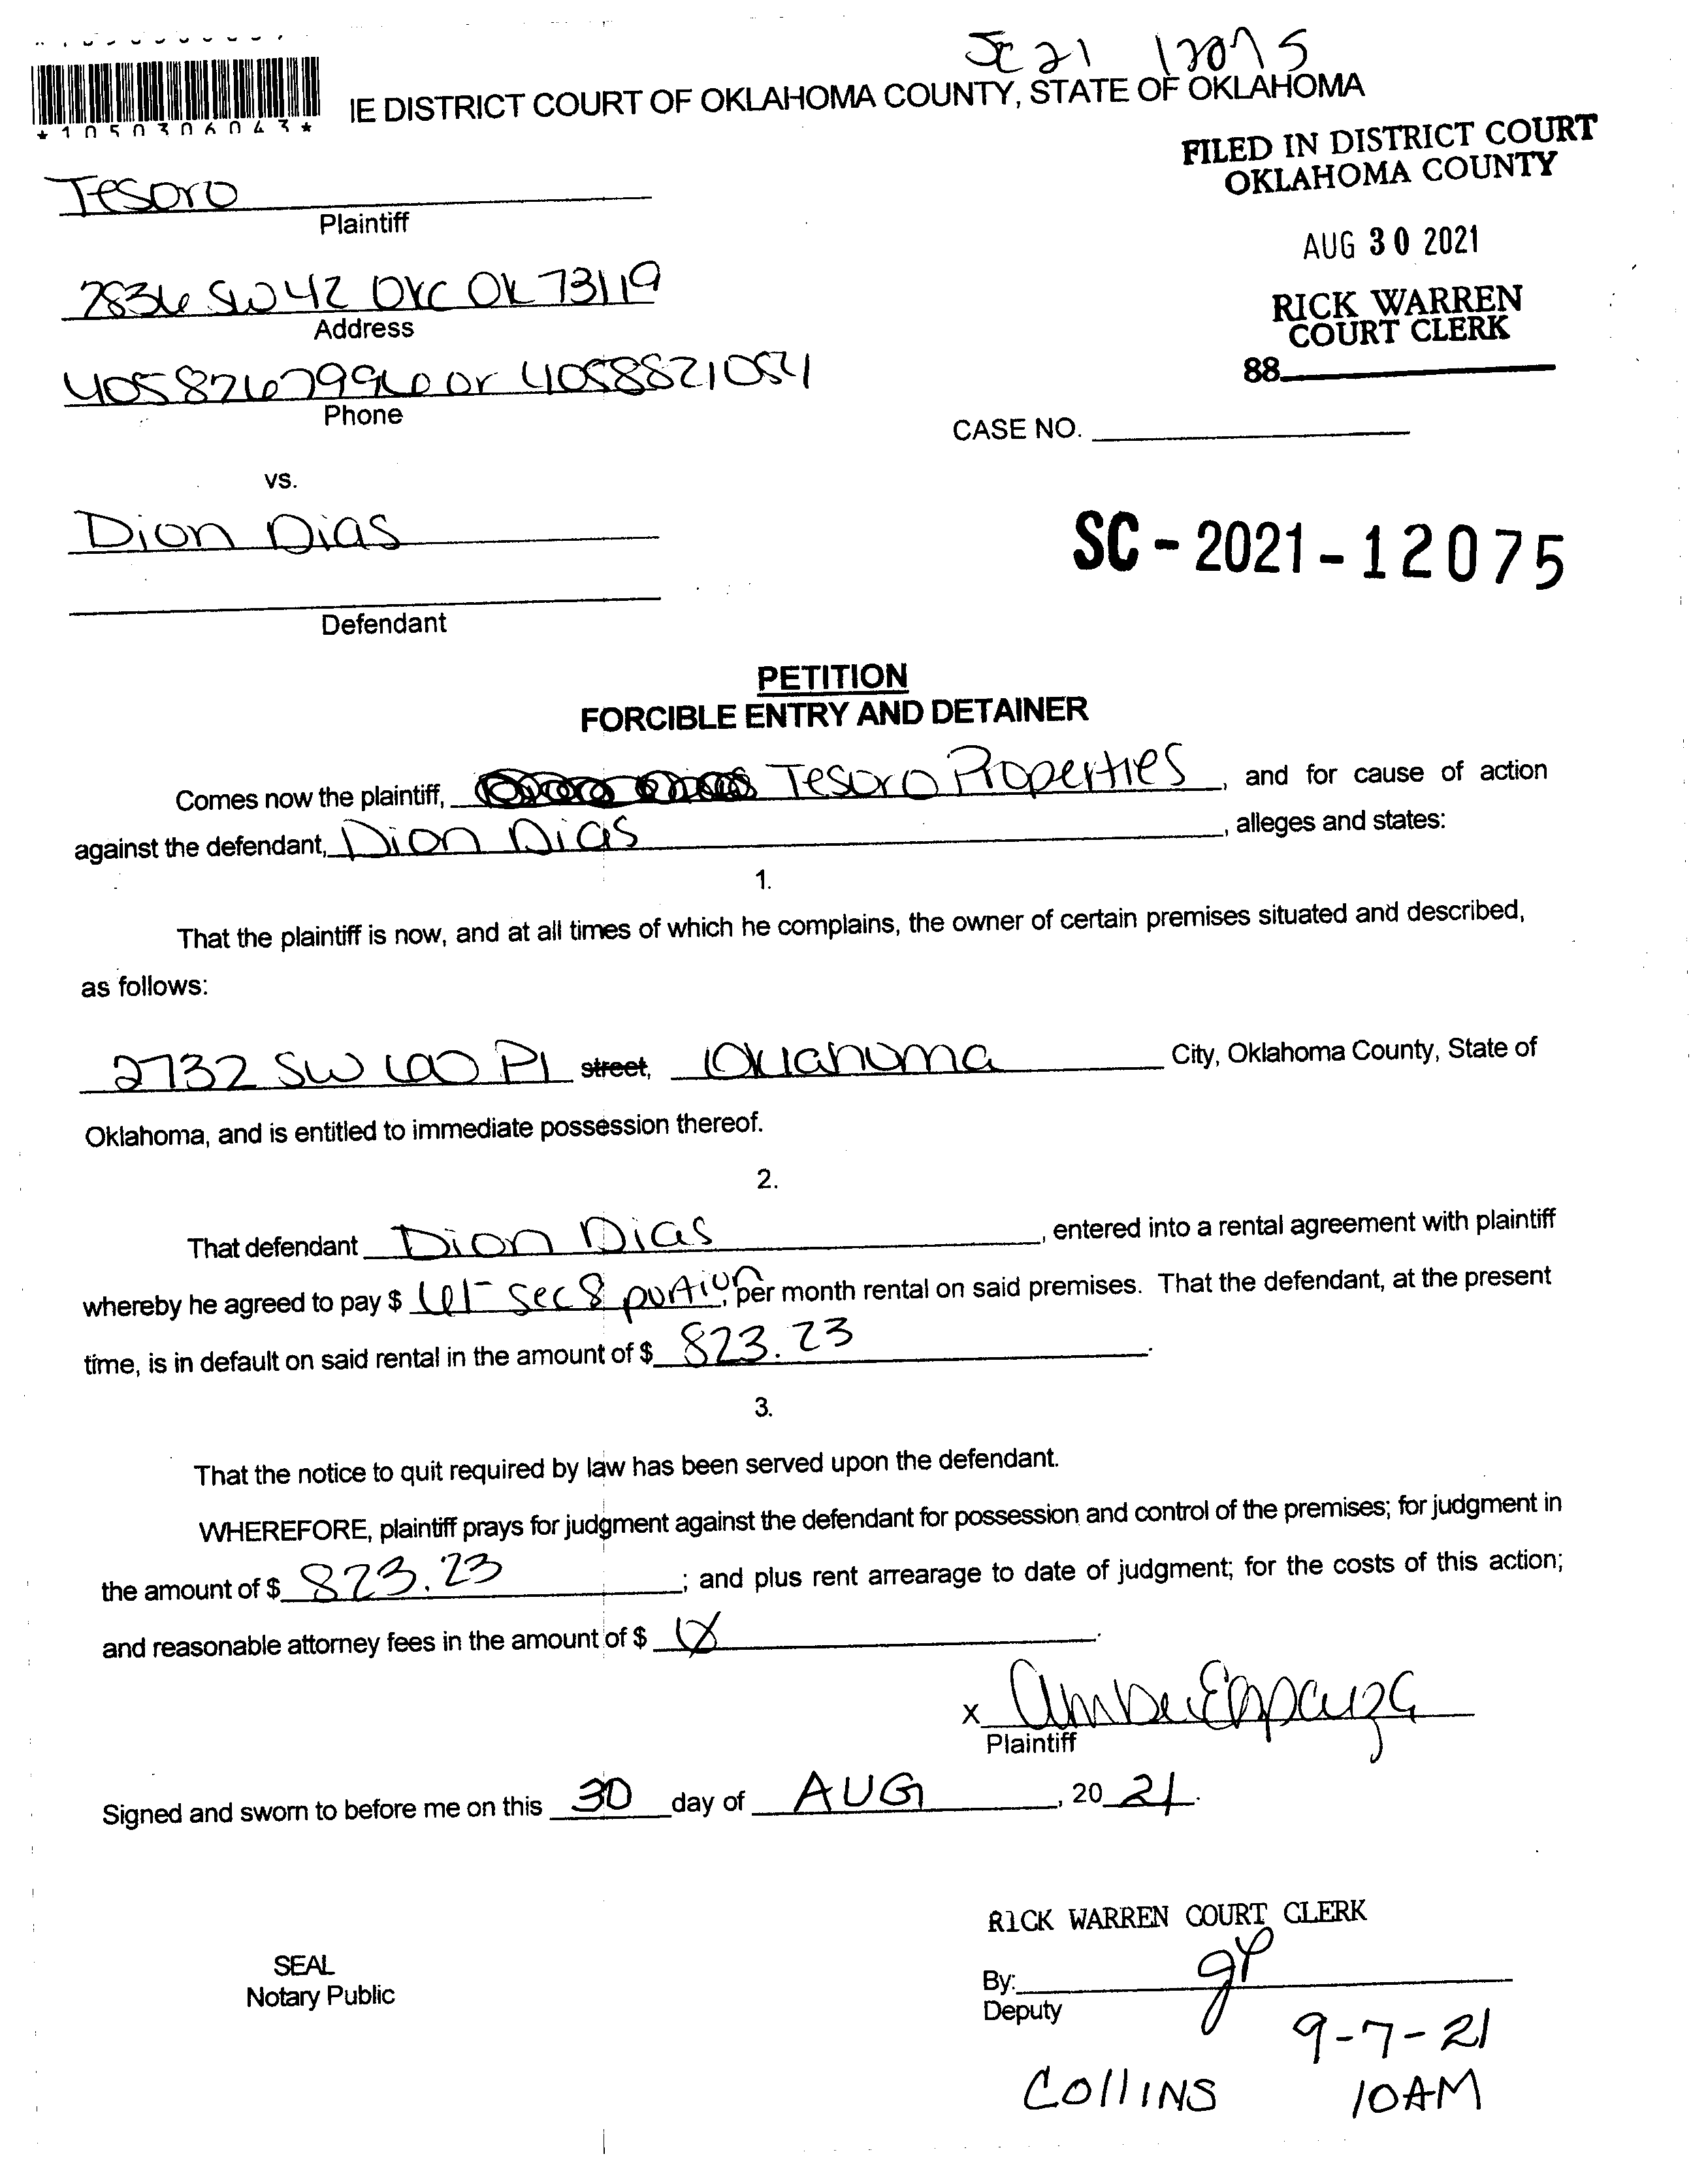 SC 21 12075
IE DISTRICT COURT OF OKLAHOMA COUNTY, STATE OF OKLAHOMA
*1050306043*
FILED IN DISTRICT COURT
OKLAHOMA COUNTY
Tesoro
Plaintiff
AUG 30 2021
2836 SW 42 OKC OK 73119
Address
RICK WARREN
COURT CLERK
88
4058267996 or 4058821054
Phone
CASE NO.
vs.
Dion Dias
SC-2021-12075
Defendant
PETITION
FORCIBLE ENTRY AND DETAINER
Comes now the plaintiff, Tesoro Properties, and for cause of action
against the defendant, Dion Dias, alleges and states:
1.
That the plaintiff is now, and at all times of which he complains, the owner of certain premises situated and described,
as follows:
2732 SW Pl street, Oklahoma City, Oklahoma County, State of
Oklahoma, and is entitled to immediate possession thereof.
2.
That defendant Dion Dias, entered into a rental agreement with plaintiff
whereby he agreed to pay $ sec 8 portion, per month rental on said premises. That the defendant, at the present
time, is in default on said rental in the amount of $ 823.23.
3.
That the notice to quit required by law has been served upon the defendant.
WHEREFORE, plaintiff prays for judgment against the defendant for possession and control of the premises; for judgment in
the amount of $ 823.23; and plus rent arrearage to date of judgment; for the costs of this action;
and reasonable attorney fees in the amount of $.
x Amber Esparza
Plaintiff
Signed and sworn to before me on this 30 day of AUG, 20 21.
RICK WARREN COURT CLERK
SEAL
Notary Public
By:
Deputy
9-7-21
COllINS 10AM